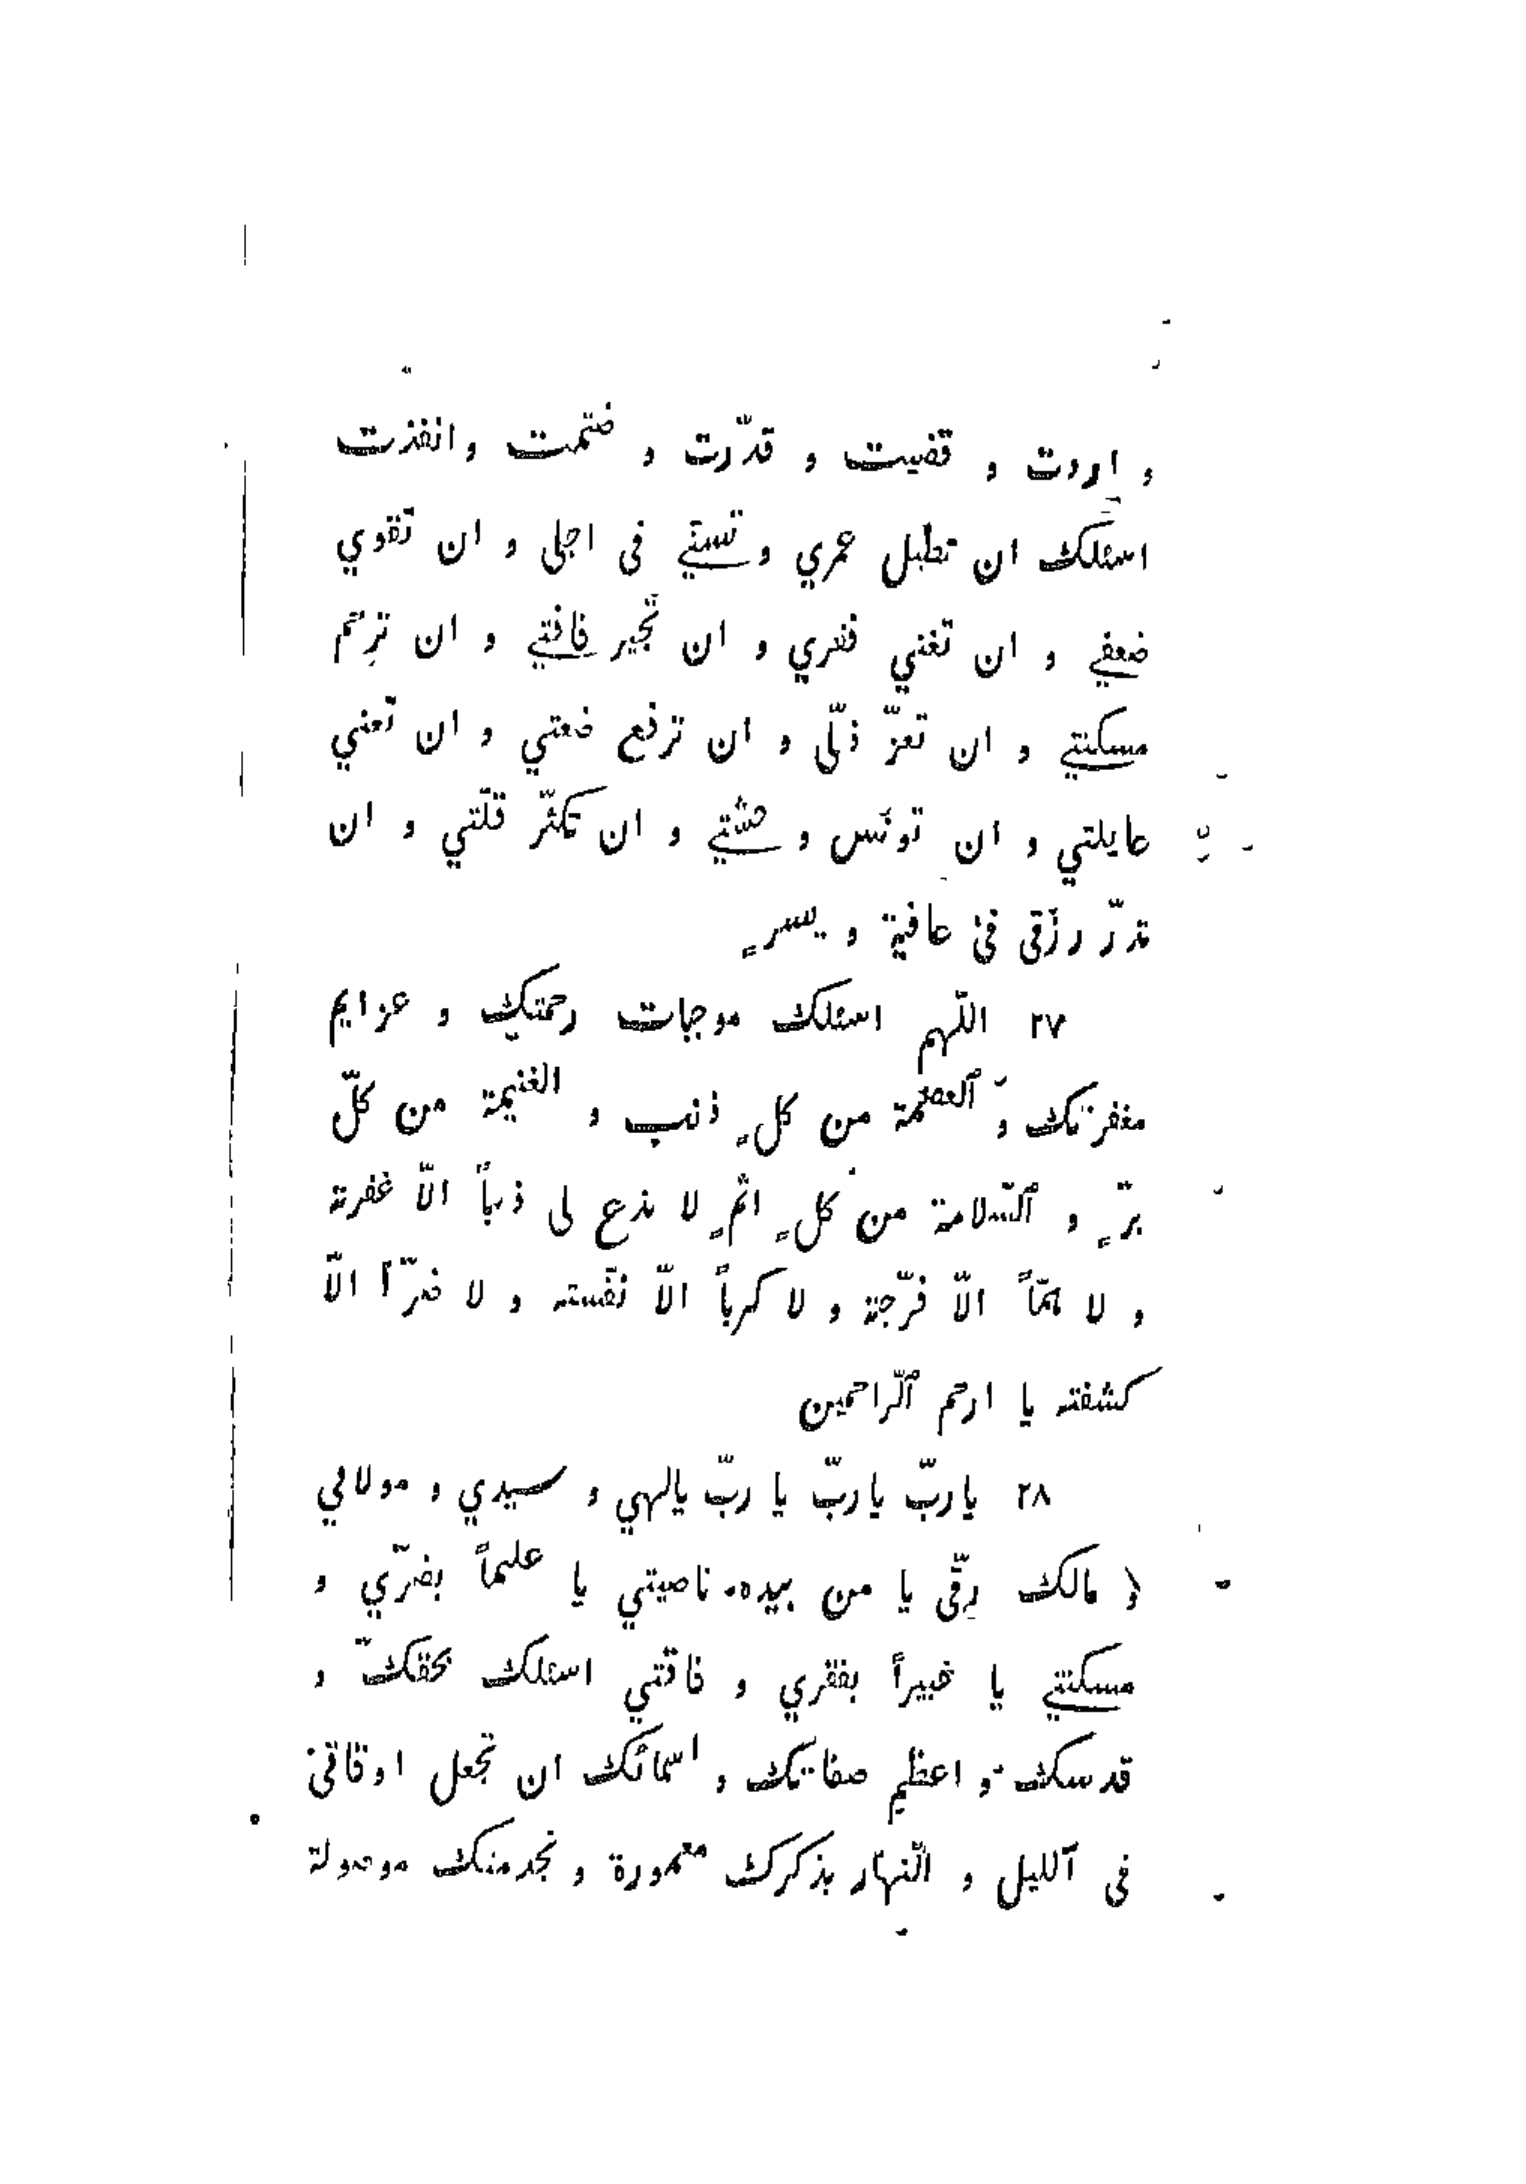 و اردت و قضيت و قدّرت و ختمت و انفذت
اسئلك ان تطيل عمري و تنسئي فى اجلى و ان تقوي
ضعفي و ان تغني فقري و ان تجير فاقتي و ان ترحم
مسكنتي و ان تعزّ ذلّى و ان ترفع ضعتي و ان تعني
عايلتي و ان تونس و حشتي و ان تكثّر قلّتي و ان
تدرّ رزقى فى عافية و يسرٍ
٢٧ اللّهم اسئلك موجبات رحمتك و عزايم
مغفرتك و ٱلعصمة من كلٍ ذنب و الغنيمة من كلّ
برّ و ٱلسّلامة من كلٍ اثمٍ لا تدع لى ذنباً الاّ غفرتة
و لا همّاً الاّ فرّجتة و لا كرباً الاّ نفّسته و لا ضرّاً الاّ
كشفته يا ارحم ٱلرّاحمين
٢٨ يا ربّ يا ربّ يا ربّ يالهي و سيدي و مولاي
مالك رقّى يا من بيده ناصيتي يا عليماً بضرّي و
مسكنتي يا خبيراً بفقري و فاقتي اسئلك بحقكّ و
قدسك و اعظم صفاتك و اسمائك ان تجعل اوقاتى
فى ٱلليل و النّهار بذكرك معمورة و بخدمتك موصولة